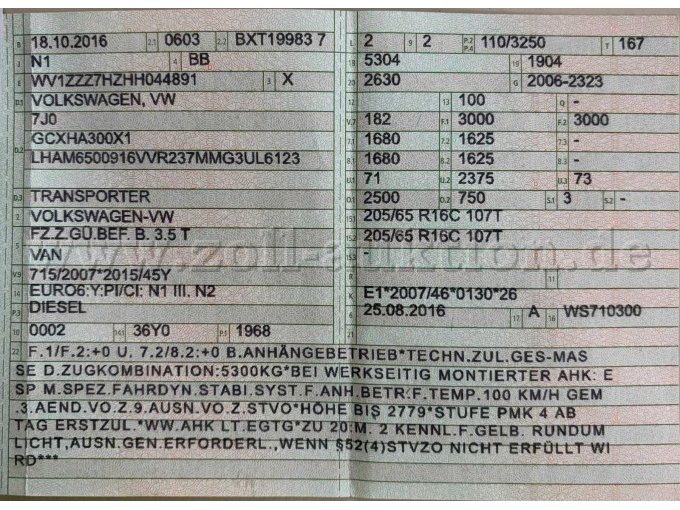 B 18.10.2016 2.1 0603 2.2 BXT19983 7
J N1 4 BB
E WV1ZZZ7HZHH044891 3 X
D.1 VOLKSWAGEN, VW
7J0
D.2 GCXHA300X1
LHAM6500916VVR237MMG3UL6123
D.3 TRANSPORTER
2 VOLKSWAGEN-VW
5 FZ.Z.GÜ.BEF. B. 3.5 T
VAN
V.9 715/2007*2015/45Y
14 EURO6:Y:PI/CI: N1 III, N2
P.3 DIESEL
10 0002 14.1 36Y0 P.1 1968
L 2 9 2 P.2 P.4 110/3250 T 167
18 5304 19 1904
20 2630 G 2006-2323
12 - 13 100 Q -
V.7 182 F.1 3000 F.2 3000
7.1 1680 7.2 1625 7.3 -
8.1 1680 8.2 1625 8.3 -
U.1 71 U.2 2375 U.3 73
O.1 2500 O.2 750 S.1 3 S.2 -
15.1 205/65 R16C 107T
15.2 205/65 R16C 107T
15.3 -
R 11
K E1*2007/46*0130*26
6 25.08.2016 17 A 16 WS710300
22 F.1/F.2:+0 U. 7.2/8.2:+0 B.ANHÄNGEBETRIEB*TECHN.ZUL.GES-MAS
SE D.ZUGKOMBINATION:5300KG*BEI WERKSEITIG MONTIERTER AHK: E
SP M.SPEZ.FAHRDYN.STABI.SYST.F.ANH.BETR:F.TEMP.100 KM/H GEM
.3.AEND.VO.Z.9.AUSN.VO.Z.STVO*HÖHE BIS 2779*STUFE PMK 4 AB
TAG ERSTZUL.*WW.AHK LT.EGTG*ZU 20:M. 2 KENNL.F.GELB. RUNDUM
LICHT,AUSN.GEN.ERFORDERL.,WENN §52(4)STVZO NICHT ERFÜLLT WI
RD***
www.zoll-auktion.de